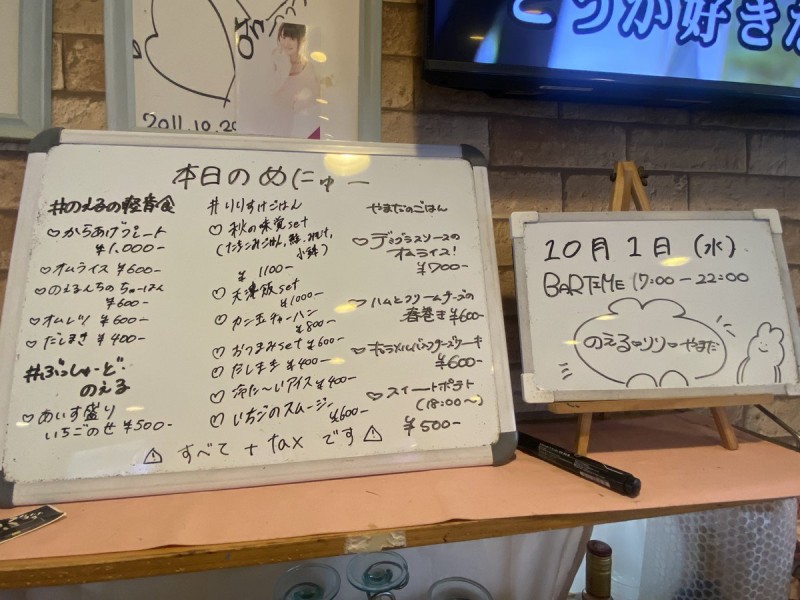 どうか好きな
2011.10.20
本日のめにゅー
#のえるの軽食
♡からあげプレート
¥1,000-
♡オムライス ¥600-
♡のえるんちのちゃーはん
¥600-
♡オムレツ ¥600-
♡だしまき ¥400-
#ぶっしゅどのえる
♡あいす盛り
いちごのせ ¥500-
#りりすけごはん
♡秋の味覚set
小鉢)
¥1100-
♡天津飯set
¥1000-
♡カニ玉チャーハン
¥800-
♡おつまみset ¥600-
♡だしまき ¥400-
♡冷た〜いアイス ¥400-
♡いちごのスムージー
¥600-
やまだのごはん
♡デミグラスソースの
オムライス!
¥700-
♡ハムとクリームチーズの
春巻き ¥600-
♡キャラメルバスクチーズケーキ
¥600-
♡スイートポテト
(18:00〜)
¥500-
⚠ すべて + tax です ⚠
10月1日(水)
BARTIME 17:00-22:00
のえる♡リリ♡やまだ